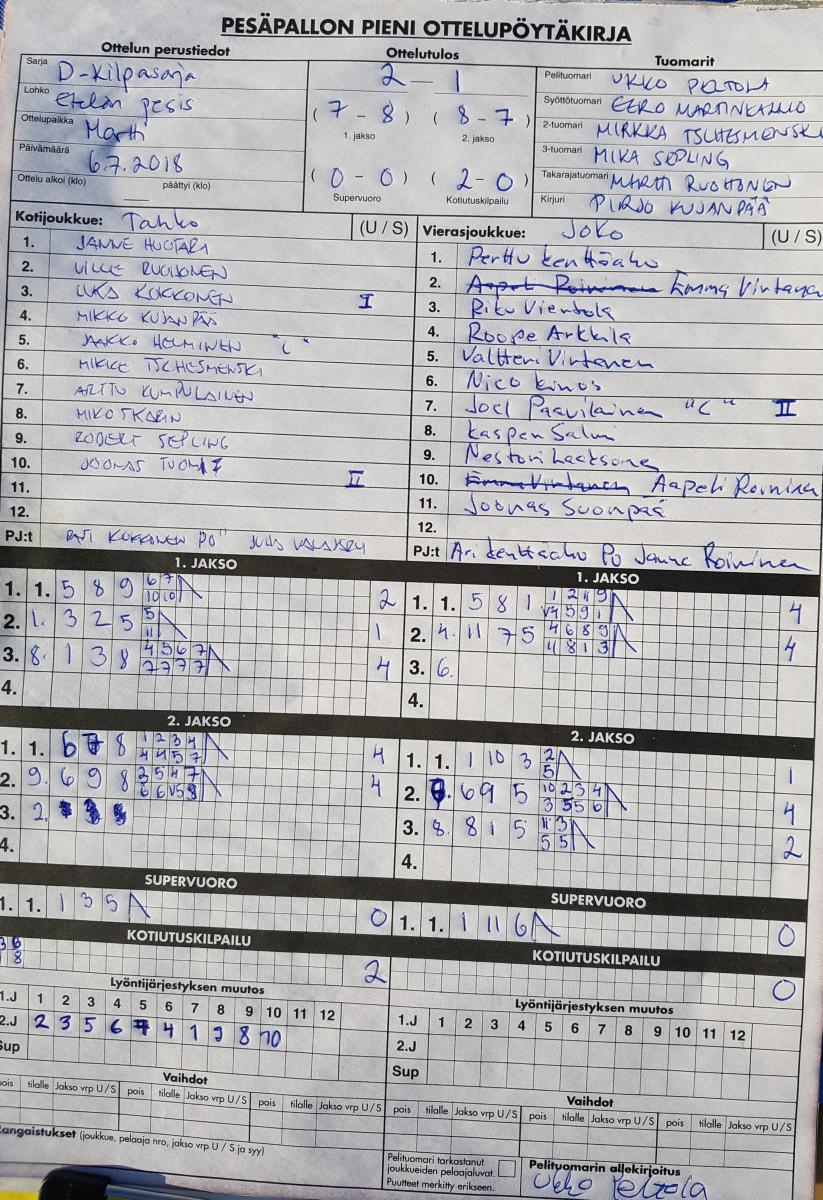 PESÄPALLON PIENI OTTELUPÖYTÄKIRJA
Ottelun perustiedot
Sarja D-Kilpasarja
Lohko Etelän pesis
Ottelupaikka Martti
Päivämäärä 6.7.2018
Ottelu alkoi (klo) päättyi (klo)
Ottelutulos
2 — 1
(7 - 8) (8 - 7)
1. jakso 2. jakso
(0 - 0) (2 - 0)
Supervuoro Kotiutuskilpailu
Tuomarit
Pelituomari UKKO PELTOLA
Syöttötuomari EERO MARTINKAUKO
2-tuomari MIRKKA TSCHESMENSKI
3-tuomari MIKA SEPLING
Takarajatuomari MARTTI RUOHONEN
Kirjuri PIRJO KUJANPÄÄ
Kotijoukkue: Tahko (U / S)
1. JANNE HUOTARI
2. VILLE RUOHONEN
3. LUKA KOKKONEN I
4. MIKKO KUJANPÄÄ
5. JAAKKO HELMINEN "C"
6. MIKKE TSCHESMENSKI
7. ARTTU KUMPULAINEN
8. MIKO SKARIN
9. ROBERT SEPLING
10. JOONAS II
11.
12.
PJ:t KOKKONEN PO"
Vierasjoukkue: JoKo (U / S)
1. Perttu Kenttäaho
2. Aapeli Roininen Emma Virtanen
3. Riku Vientola
4. Roope Arkkila
5. Valtteri Virtanen
6. Nico Kinos
7. Joel Paavilainen "C" II
8. Kasper Salmi
9. Nestori Laaksonen
10. Emma Virtanen Aapeli Roininen
11. Joonas Suonpää
12.
PJ:t Ari Kenttäaho Po Janne Roininen
1. JAKSO
1. 1. 5 8 9 6 7 2
10 10
2. 1. 3 2 5 5 1
11
3. 8. 1 3 8 4 5 6 7 4
7 7 7 7
4.
1. JAKSO
1. 1. 5 8 1 1 2 11 9 4
V4 5 9 1
2. 4. 11 7 5 4 6 8 9 4
11 8 1 3
3. 6.
4.
2. JAKSO
1. 1. 6 8 1 2 3 4 4
4 4 5 7
2. 9. 6 9 8 3 5 4 7 4
6 6 V5 9
3. 2.
4.
2. JAKSO
1. 1. 1 10 3 2 1
5
2. 6 9 5 10 2 3 4 4
3 5 5 6
3. 8. 8 1 5 11 3 2
5 5
4.
SUPERVUORO
1. 1. 1 3 5 0
SUPERVUORO
1. 1. 1 11 6 0
KOTIUTUSKILPAILU
3 6 2
8
KOTIUTUSKILPAILU
0
Lyöntijärjestyksen muutos
1.J 1 2 3 4 5 6 7 8 9 10 11 12
2.J 2 3 5 6 7 4 1 9 8 10
Sup
Lyöntijärjestyksen muutos
1.J 1 2 3 4 5 6 7 8 9 10 11 12
2.J
Sup
Vaihdot
pois tilalle Jakso vrp U / S pois tilalle Jakso vrp U / S pois tilalle Jakso vrp U / S
Vaihdot
pois tilalle Jakso vrp U / S pois tilalle Jakso vrp U / S pois tilalle Jakso vrp U / S
Rangaistukset (joukkue, pelaaja nro, jakso vrp U / S ja syy)
Pelituomari tarkastanut
joukkueiden pelaajaluvat.
Puutteet merkitty erikseen.
Pelituomarin allekirjoitus
Ukko Peltola